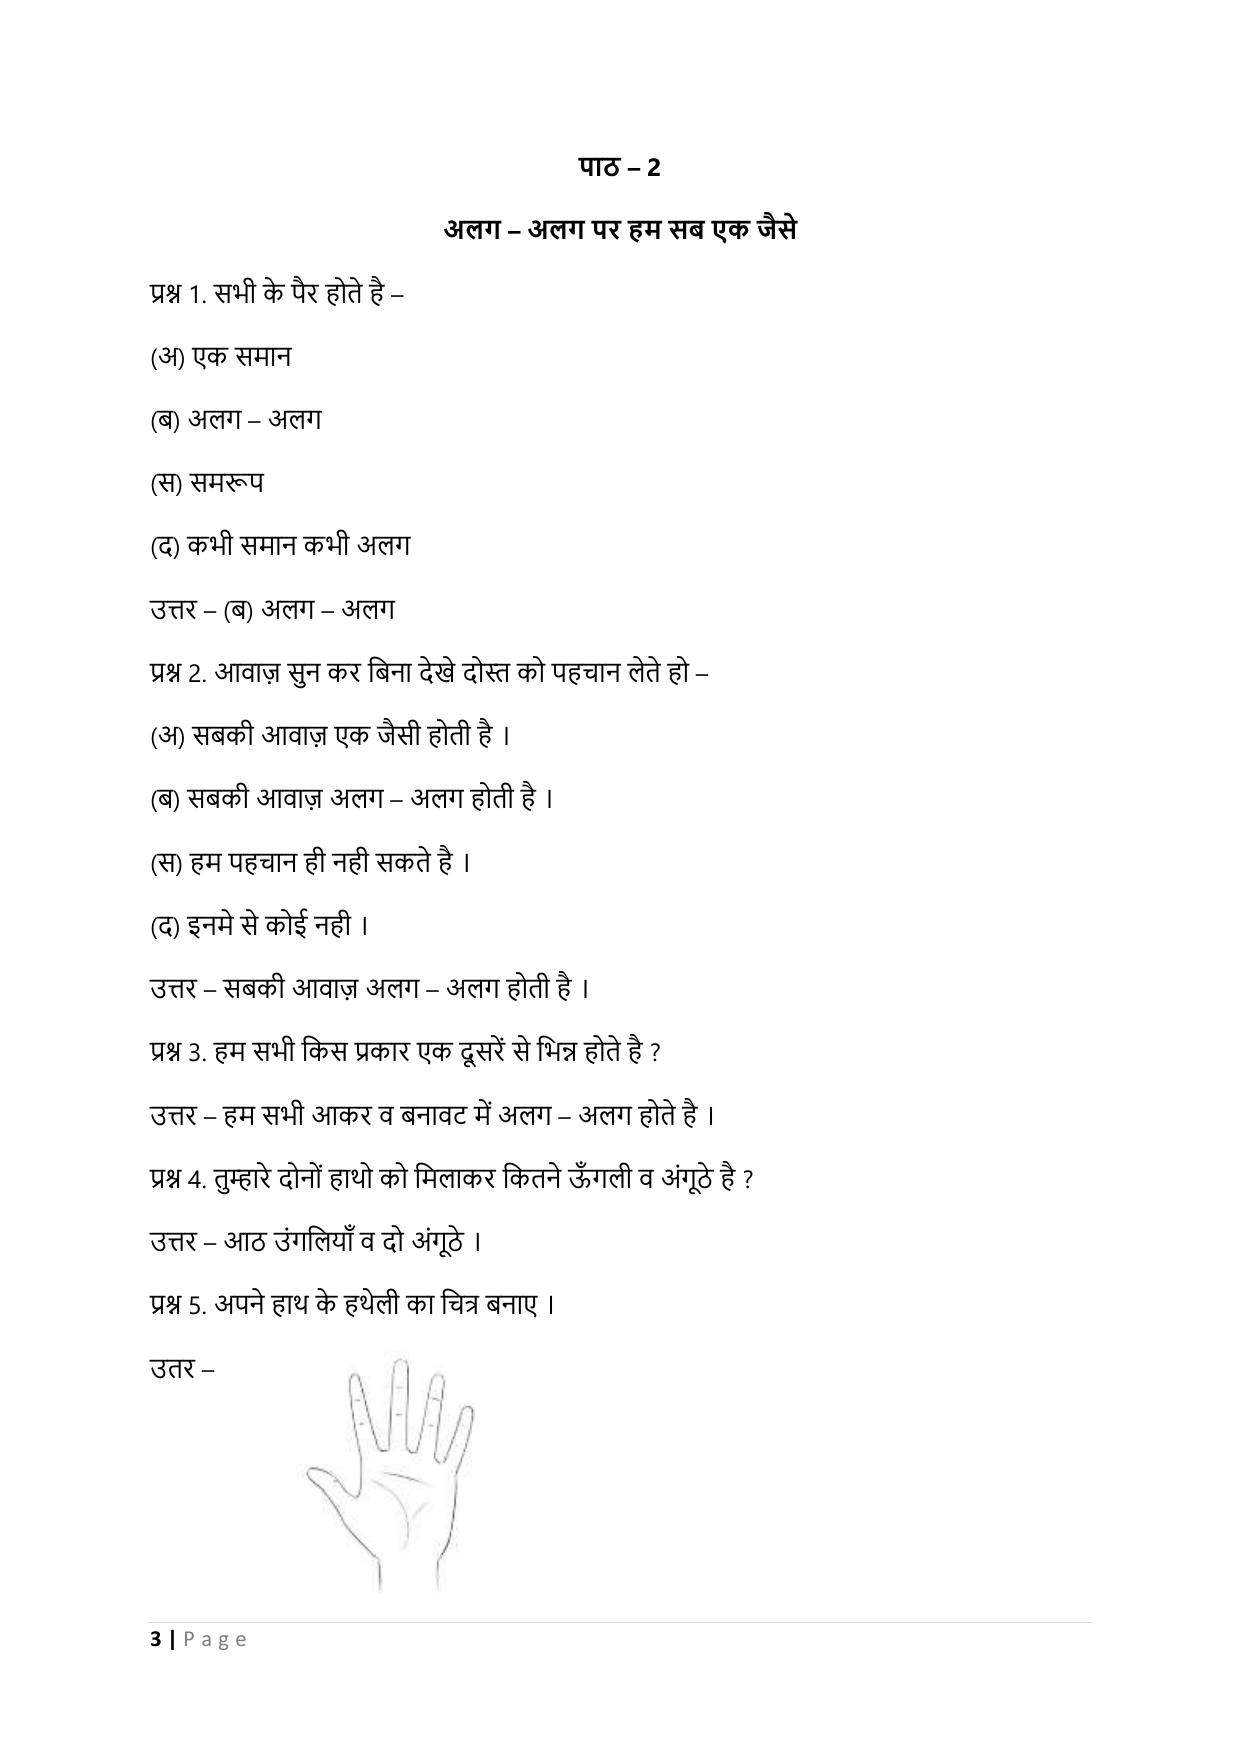 पाठ – 2
अलग – अलग पर हम सब एक जैसे
प्रश्न 1. सभी के पैर होते है –
(अ) एक समान
(ब) अलग – अलग
(स) समरूप
(द) कभी समान कभी अलग
उत्तर – (ब) अलग – अलग
प्रश्न 2. आवाज़ सुन कर बिना देखे दोस्त को पहचान लेते हो –
(अ) सबकी आवाज़ एक जैसी होती है ।
(ब) सबकी आवाज़ अलग – अलग होती है ।
(स) हम पहचान ही नही सकते है ।
(द) इनमे से कोई नही ।
उत्तर – सबकी आवाज़ अलग – अलग होती है ।
प्रश्न 3. हम सभी किस प्रकार एक दूसरें से भिन्न होते है ?
उत्तर – हम सभी आकर व बनावट में अलग – अलग होते है ।
प्रश्न 4. तुम्हारे दोनों हाथो को मिलाकर कितने ऊँगली व अंगूठे है ?
उत्तर – आठ उंगलियाँ व दो अंगूठे ।
प्रश्न 5. अपने हाथ के हथेली का चित्र बनाए ।
उतर –
3 | Page